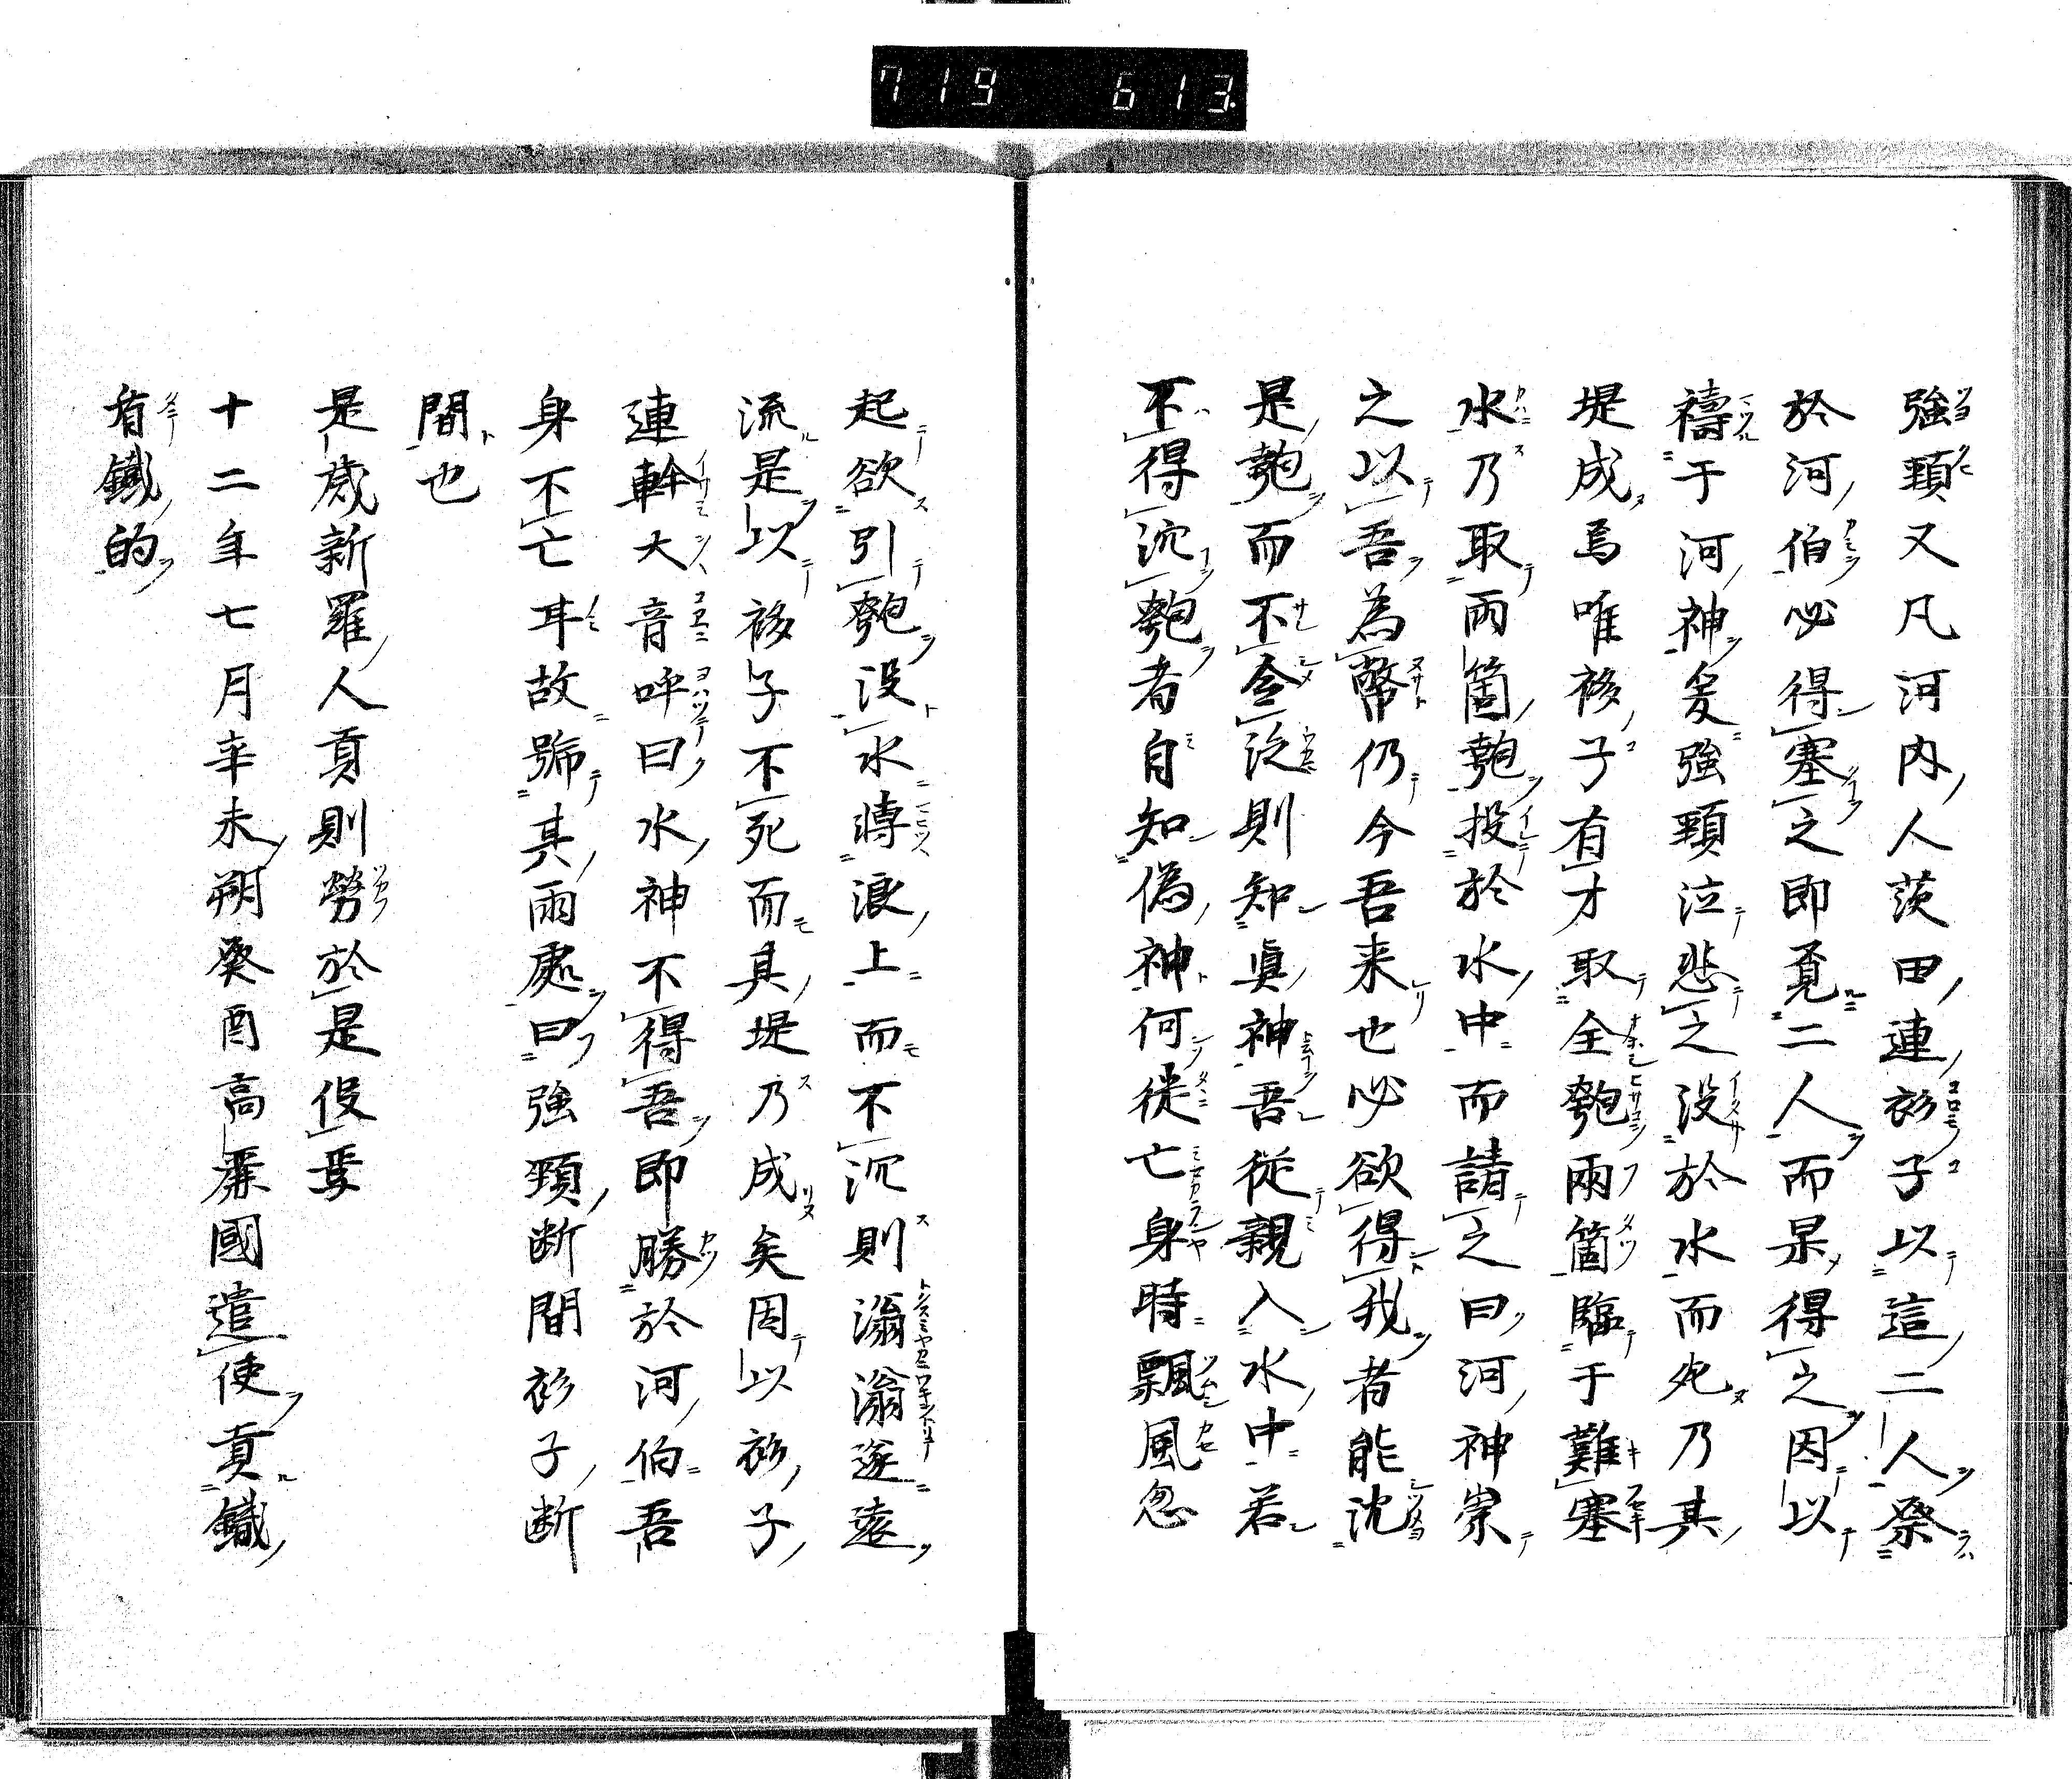 719 613.
強頚又凡河内人茨田連衫子以這二人祭
於河伯必得塞之即覓二人而杲得之因以
禱于河神爰強頚泣悲之没於水而死乃其
堤成焉唯衫子有才取全匏兩箇臨于難塞
水乃取兩箇匏投於水中而請之曰河神崇
之以吾為幣仍今吾来也必欲得我者能沈
是匏而不令泛則知眞神吾従親入水中若
不得沉匏者自知偽神何徒亡身時飄風忽
起欲引匏没水轉浪上而不沉則滃滃遂遠
流是以衫子不死而具堤乃成矣因以衫子
連幹大音呼曰水神不得吾即勝於河伯吾
身不亡耳故號其兩處曰強頚断間衫子断
間也
是歳新羅人貢則勞於是役焉
十二年七月辛未朔癸酉高麗國遣使貢鐵
盾鐵的